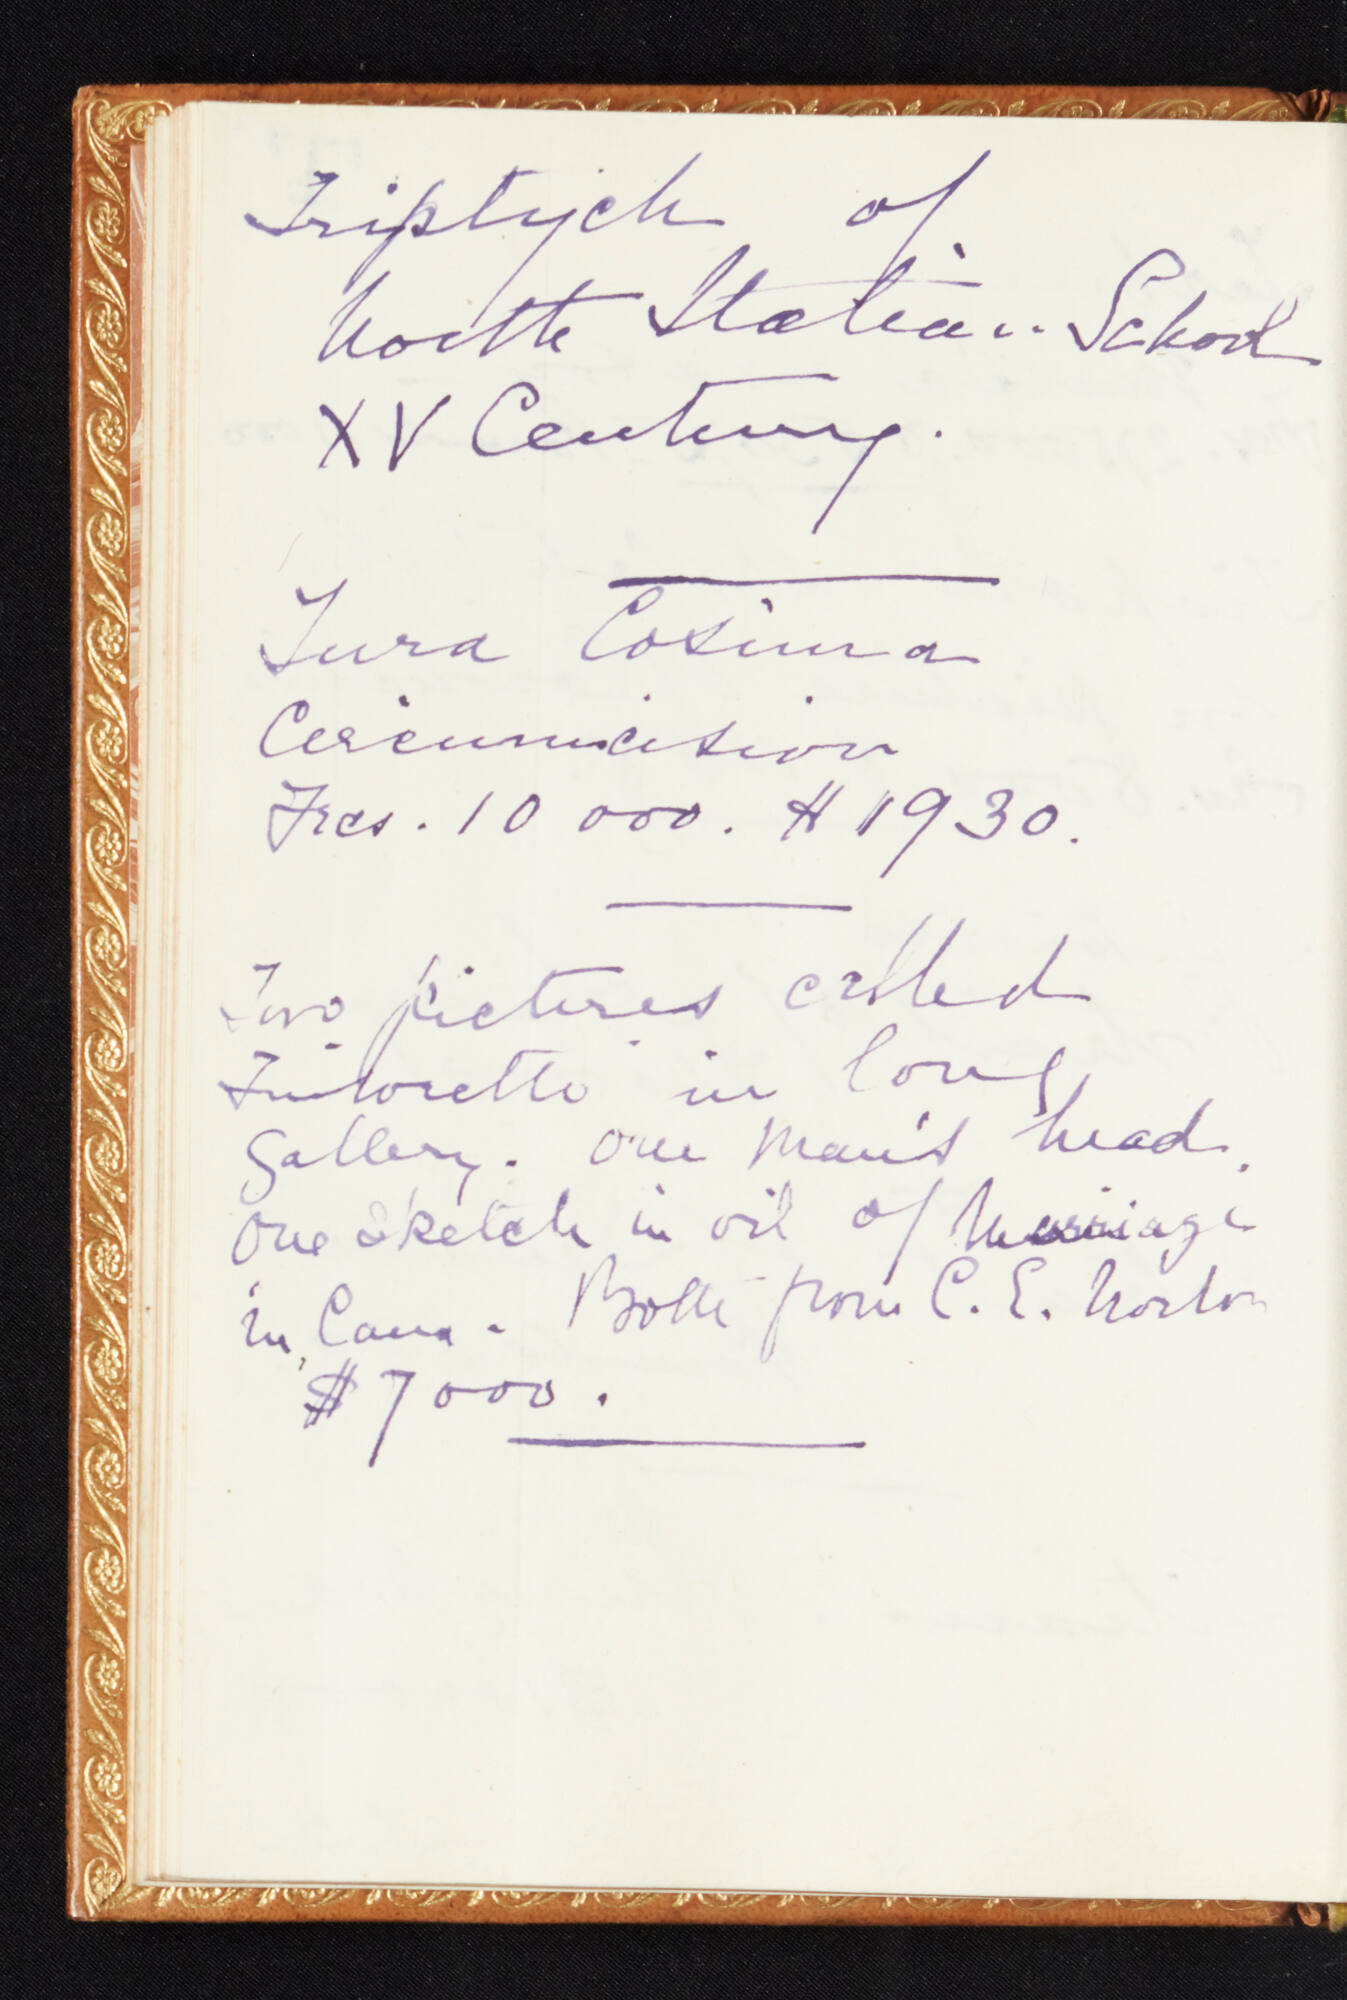 Triptych of
North Italian School
XV Century.
Tura Cosima
Circumcision
Frcs. 10 000. $ 1930.
Two pictures called
Tintoretto in long
gallery. One Man's head.
One sketch in oil of Marriage
in Cana. Both from C. E. Norton
$ 7000.